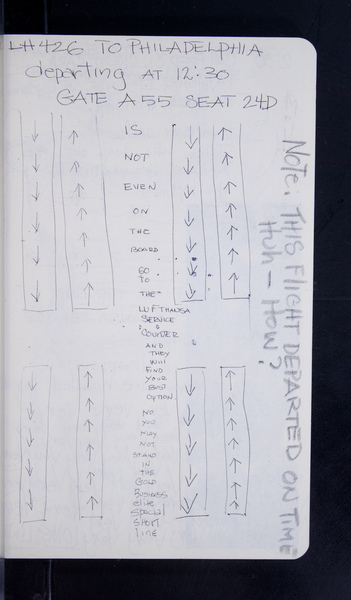 LH 426 TO PHILADELPHIA
departing AT 12:30
GATE A55 SEAT 24D
IS
NOT
EVEN
ON
THE
BOARD
GO
TO
THE
LUFTHANSA
SERVICE
COUNTER
AND
THEY
WILL
FIND
YOUR
BEST
OPTION.
NO
YOU
MAY
NOT
STAND
IN
THE
GOLD
BUSINESS
elite
special
SHORT
line
Note: THIS FLIGHT DEPARTED ON TIME
HUH – HOW?